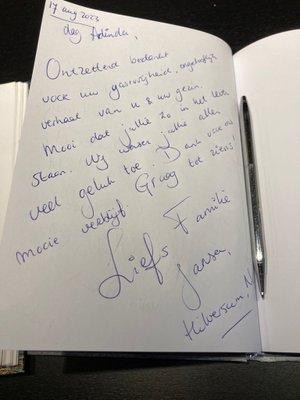 17 aug 2023
dag Adinda,
Ontzettend bedankt
voor uw gastvrijheid, ongelooflijk
verhaal van u & uw gezin.
Mooi dat jullie zo in het leven
staan. Wij wensen jullie allen
veel geluk toe. Dank voor ons
mooie verblijf. Graag tot ziens!
Liefs Familie
Jansen,
Hilversum, N